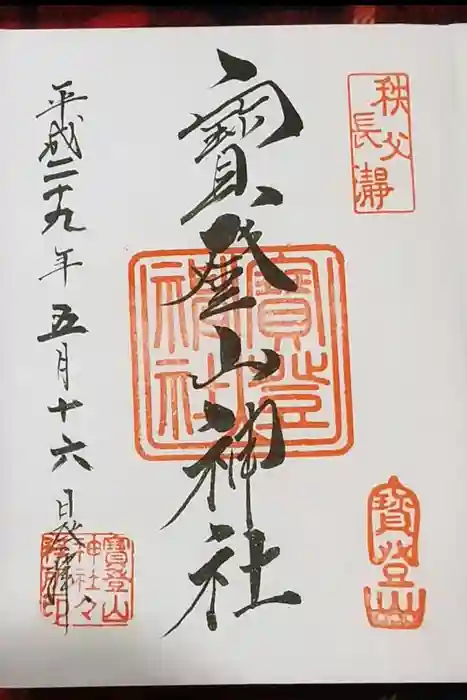 秩父
長瀞
寳登山神社
寳登
神社
寳登山
平成二十九年五月十六日
寳登山
神社々